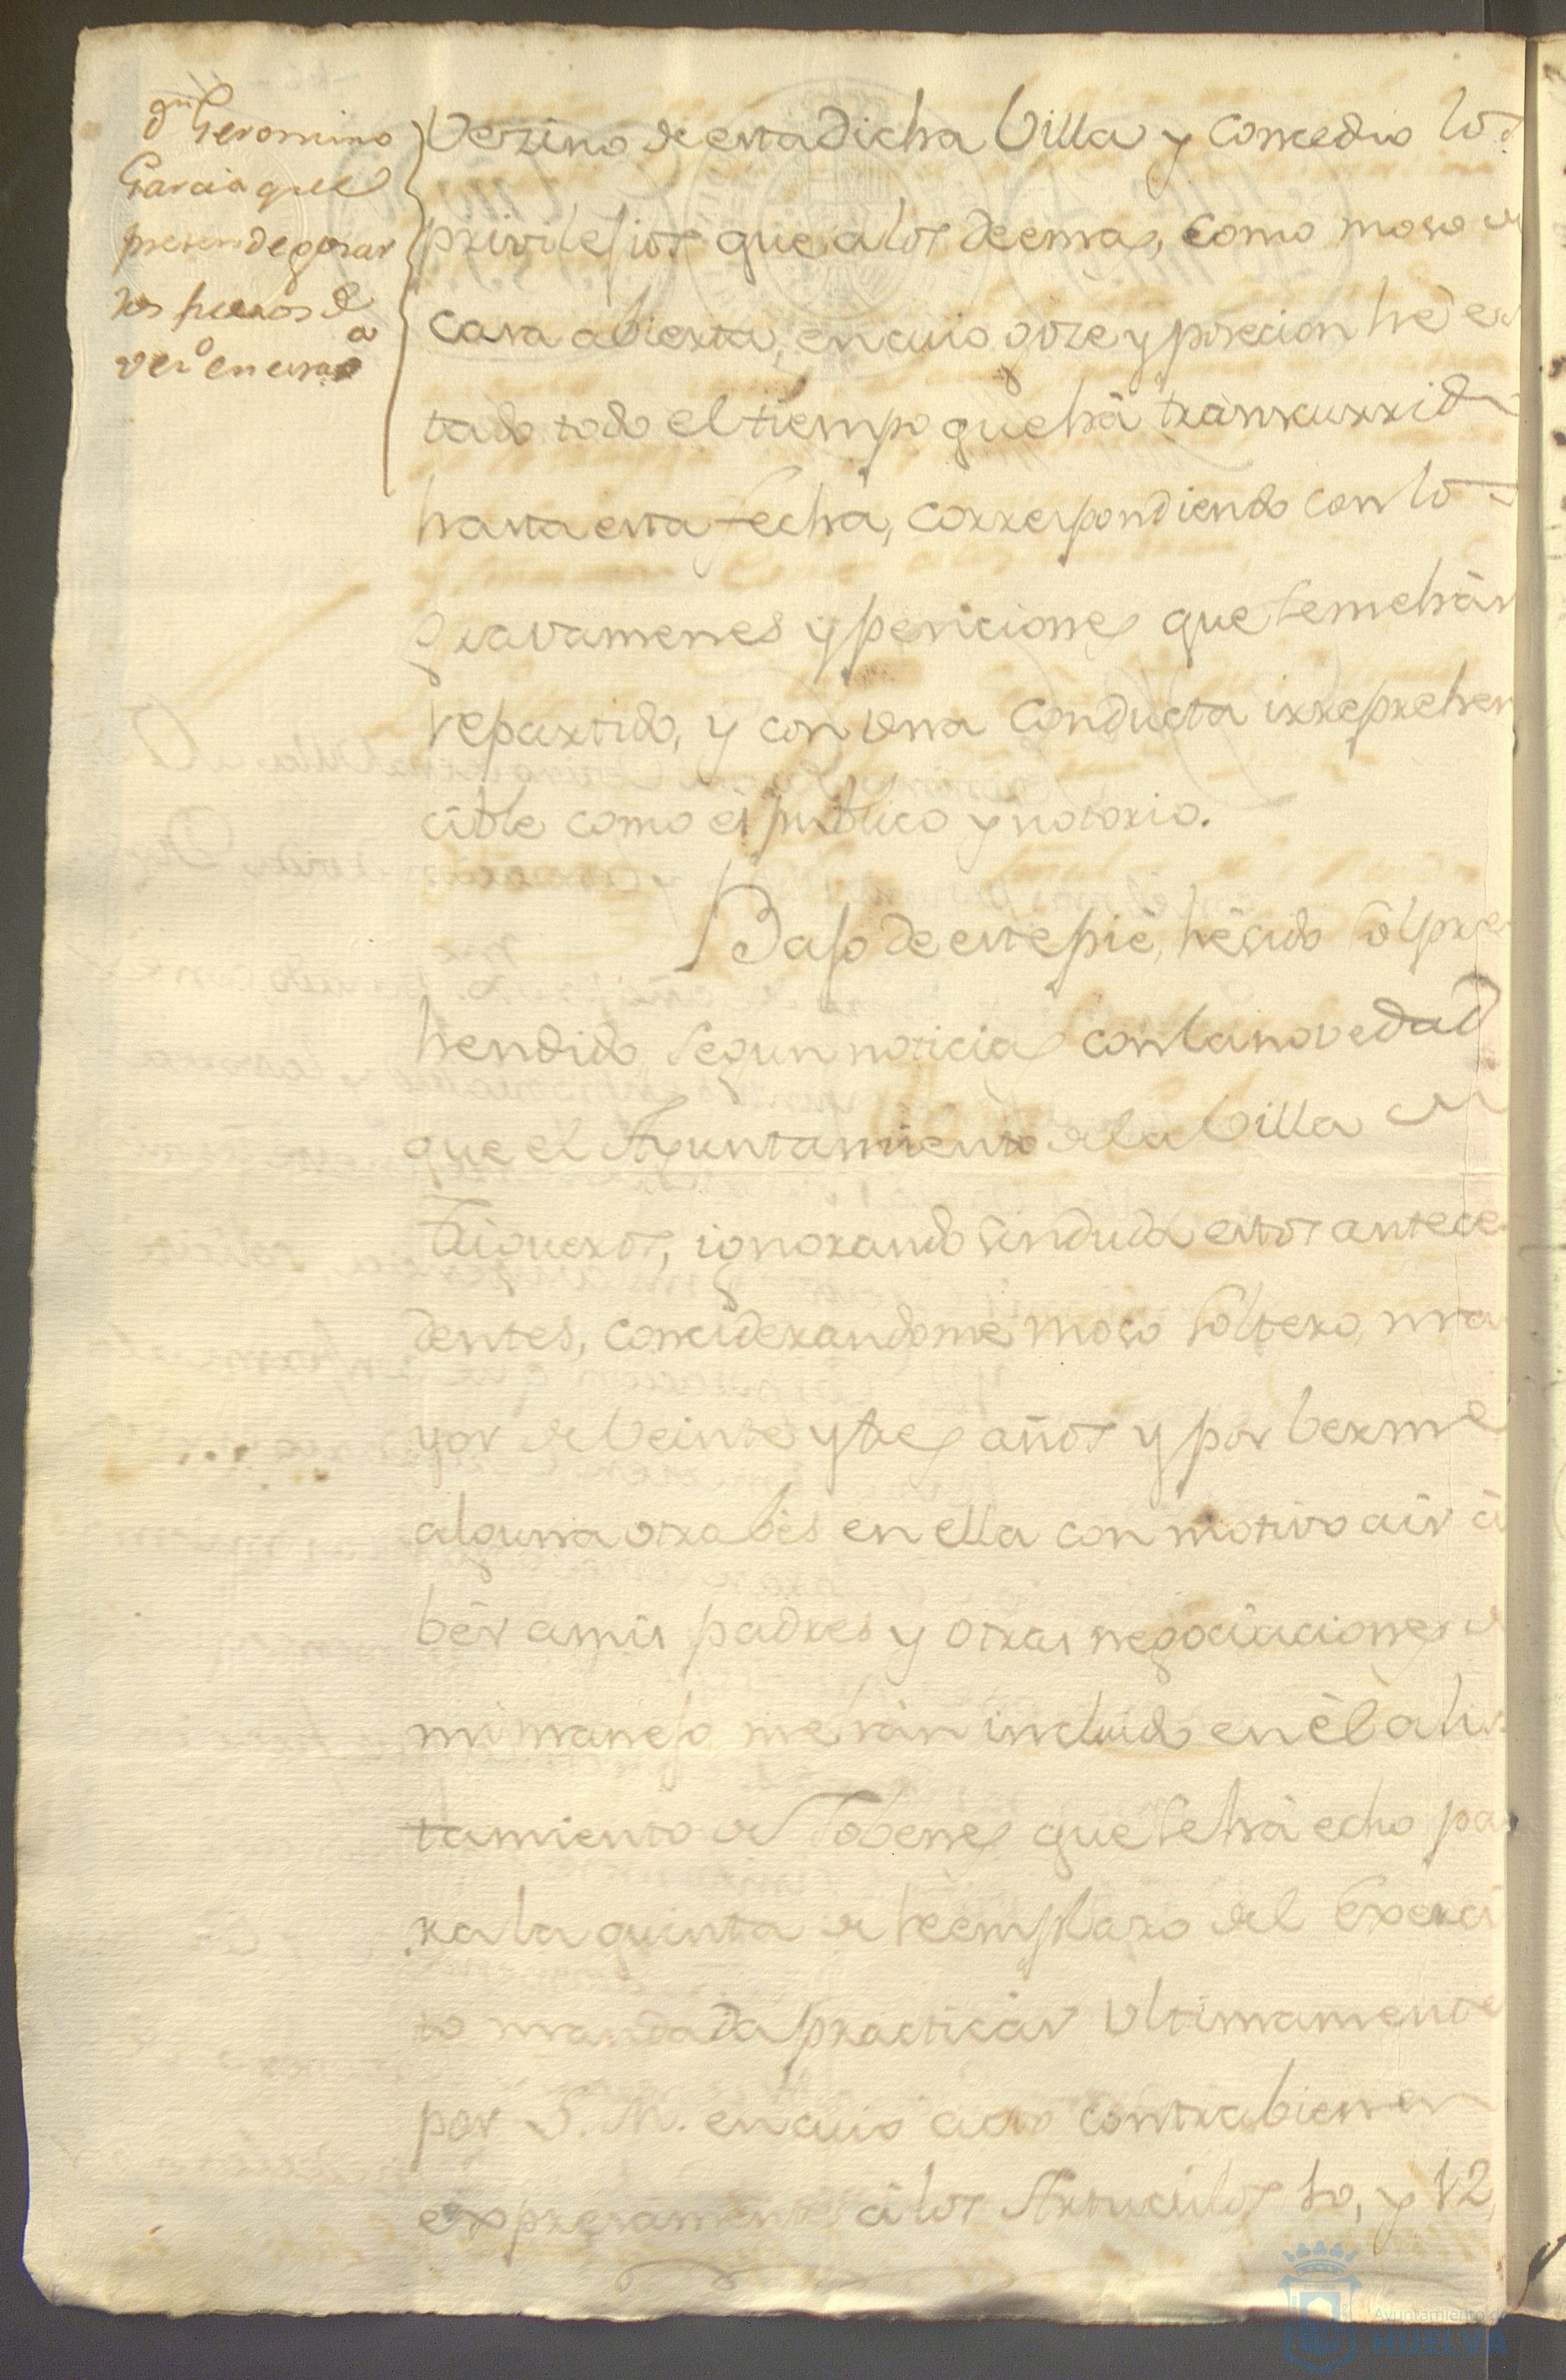 dn Geronimo
Garcia que
pretende gosar
los fueros de
vezo en esta
Vezino de esta dicha Villa y Consedio los
privilejios que a los deemas, como moso de
casa abierta, en cuio goze y posecion hè es
tado todo el tiempo que hà transcurrido
hasta esta fecha, correspondiendo con los
gravamenes y peniciones que se me hàn
repartido, y con una conducta irreprehen
cible como es publico y notorio.
Bajo de este piè, hè sido Sorpre
hendido segun noticias con la novedad
que el Ayuntamiento de la Villa de
Trigueros, ignorando sin duda estos antece
dentes, conciderandome moso soltero, ma
yor de Veinte y tres años y por berme
alguna otra bès en ella con motivo a ir à
bèr a mis padres y otras negociaciones de
mi manejo me hàn incluido en èl alis
tamiento de Jobenes que se hà echo pa
ra la quinta de Reemplaso del Exerci
to mandada practicar Ultimamente
por S. M. en cuio acto contrabienen
expresamente à los Articulos 10, y 12
Ayuntamiento de
HUELVA